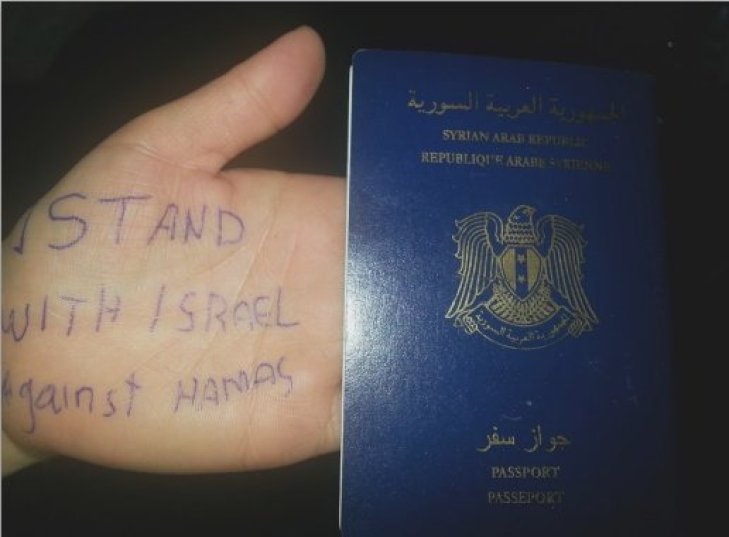 I STAND
WITH ISRAEL
Against HAMAS
الجمهورية العربية السورية
SYRIAN ARAB REPUBLIC
REPUBLIQUE ARABE SYRIENNE
الجمهورية العربية السورية
جواز سفر
PASSPORT
PASSEPORT